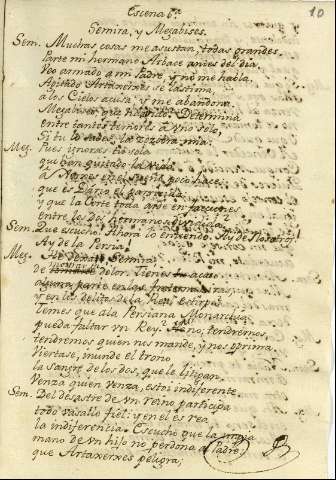 10
Escena 5ª
Semira, y Megabises.
Sem. Muchas cosas me asustan, todas grandes.
Parte mi hermano Arbace antes del dia.
Veo armado a mi Padre, y no me habla.
Agitado Artaxerxes se lastima,
a los Cielos acusa, y me abandona.
Megabises, que
entre tantos temores a uno solo,
Si tu lo sabes, la zozobra mia.
Meg. Pues ignores tu sola
que han quitado la vida
a
que es Dario el parricida
y que la Corte toda arde en facciones
entre los dos hermanos
Sem. Que escucho! Ahora lo entiendo. Ay de Nosotros!
Ay de la Persia!
Meg. Semira
de dolor. Tienes acaso
alguna parte en las
y en los delitos de la Real estirpe?
Temes que a la Persiana Monarchia
pueda faltar un Rey? no, tendremos
tendremos quien nos mande, y nos oprima.
Viertase, inunde el trono
la sangre de los dos, que le litigan.
Venza quien venza, estoi indiferente.
Sem. Del desastre de un reino participa
todo vasallo fiel: y en el es rea
la indiferencia. Escuché que la impia
mano de un hijo no perdona al Padre
que Artaxerxes peligra,